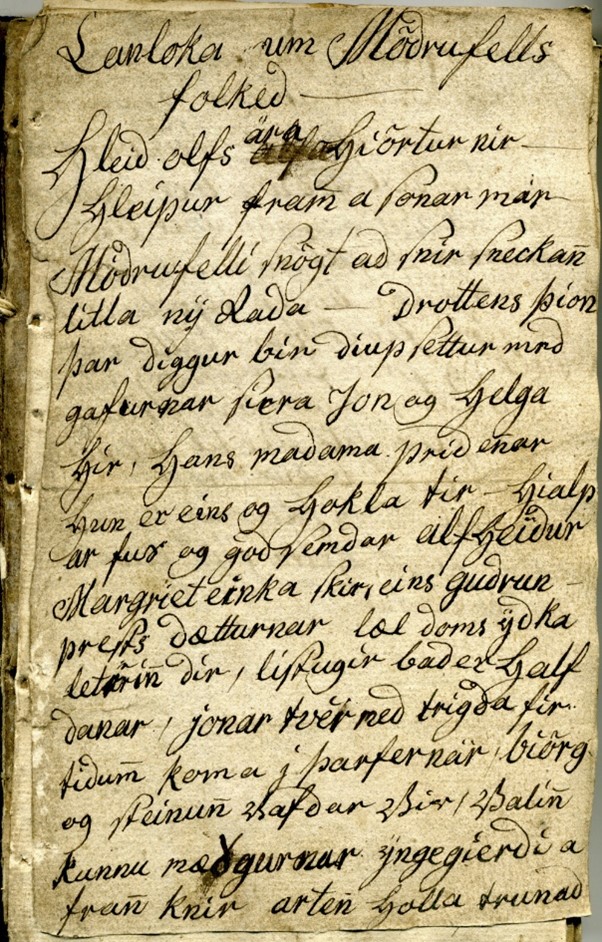 Lanloka um Mödrufells
folked
Hleid olfs ära Hiörtur nir
Hleipur fram̄ a sonar mar
Mödrufelli snögt ad snir sneckan̄
litla nÿ Lada — Drottens þion
þar diggur bir diupsettur med
gafurnar sira Jon og Helga
hir, Hans madama pridenar
hun er eins og Hokla tir — Hialp
ar fus og god semdar alfheidur
Margriet einka skir, eins gudrun
prests dætturnar læl doms ÿdka
letörin̄ dir, listugir bader Half
danar, jonar tveir med trigda fir
tidum̄ koma j þarfernar, biörg
og steinun̄ Vafdar Vir, Valin̄
kunnu mædgurnar ÿngegierdi a
fran̄ knir arten̄ Holla trunad